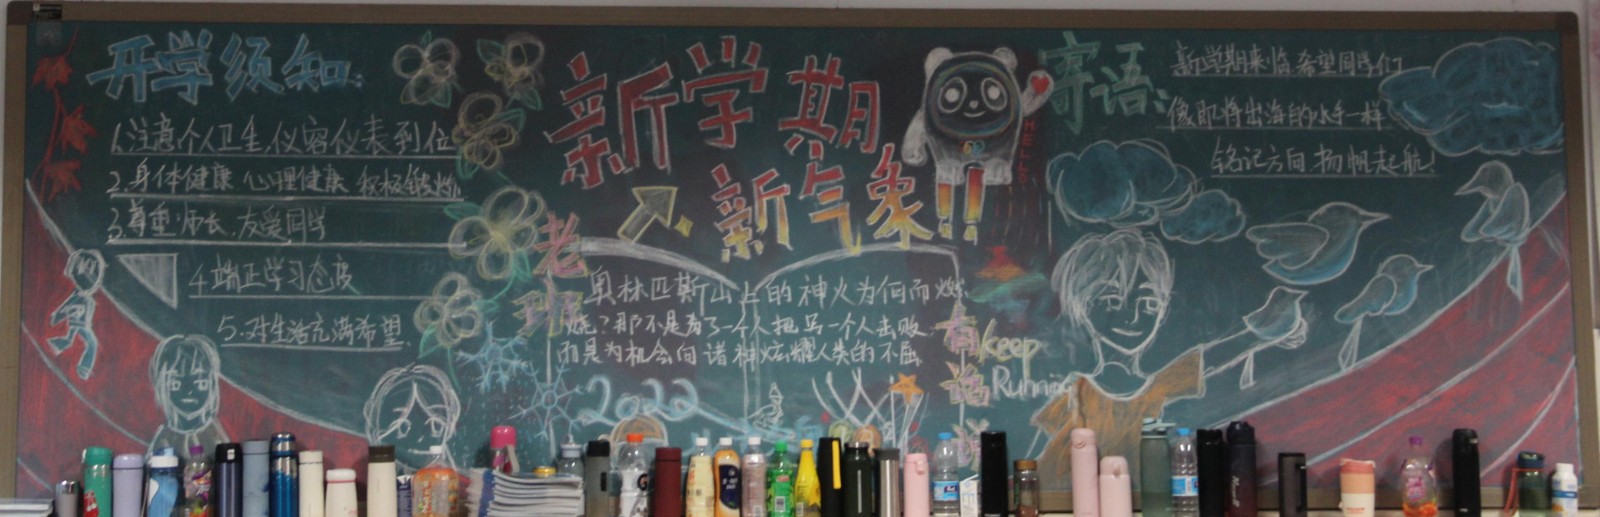 开学须知:
1.注意个人卫生,仪容仪表到位
2.身体健康 心理健康 积极锻炼
3.尊重师长,友爱同学
4.端正学习态度
5.对生活充满希望.
新学期
新气象!!
老班有话
奥林匹斯山上的神火为何而燃
烧?那不是为了一个人把另一个人击败
而是为机会向诸神炫耀人类的不屈
2022
Keep
Running
寄语:
新学期来临,希望同学们
像即将出海的水手一样
铭记方向,扬帆起航!